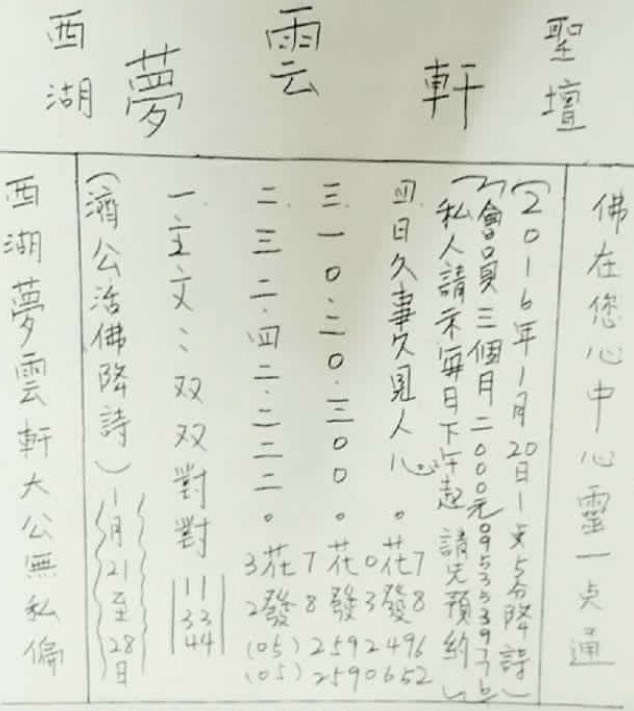 西湖
夢雲軒
聖壇
西湖夢雲軒大公無私偏
(濟公活佛降詩)1月21至28日
一.主文:双双對對
11
33
44
二.三二.四二.二二二。
三.一0.二0.三00。
四.日久事久見人心。
3花7花0花7
2發8發3發8
(05)2592496
(05)2590652
私人請示每日下午起 請先預約
會員三個月二000元
(2016年1月20日1点5分降詩)
佛在您心中心靈一点通